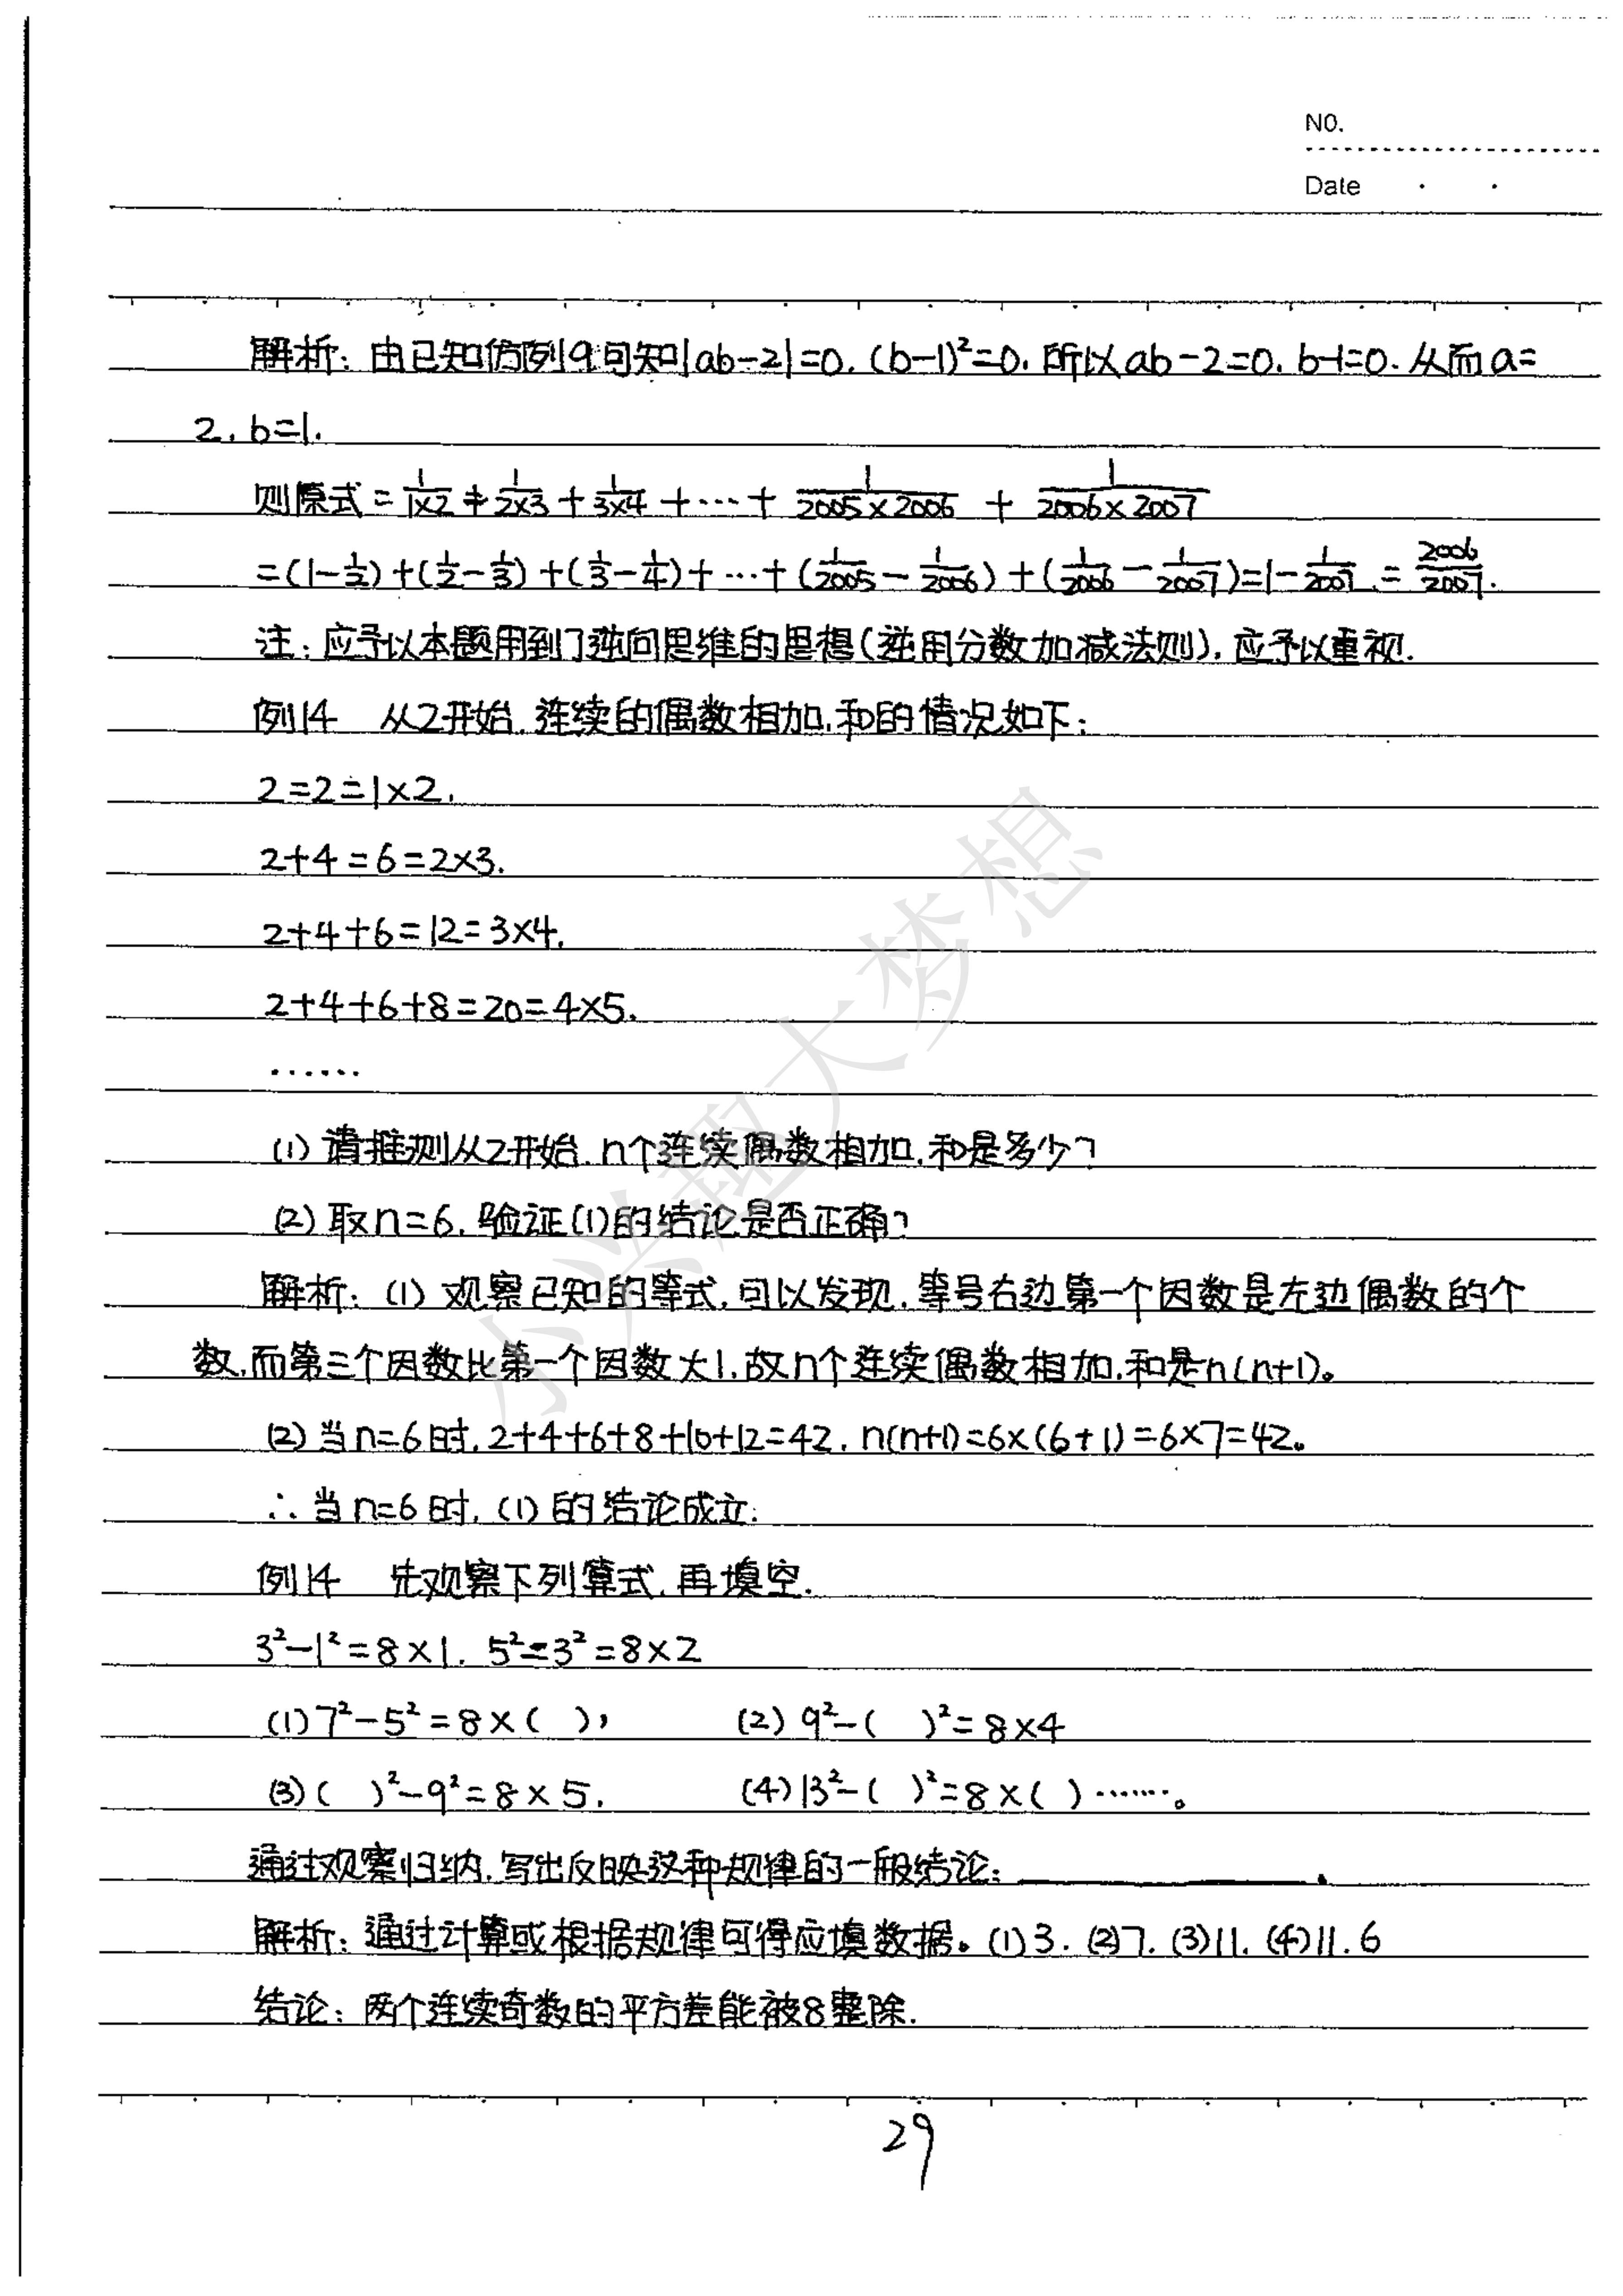 NO.
Date
解析：由已知仿例9可知|ab-2|=0.(b-1)²=0.所以ab-2=0.b-1=0.从而a=
2.b=1.
则原式=1/(1×2)+1/(2×3)+1/(3×4)+…+1/(2005×2006)+1/(2006×2007)
=(1-1/2)+(1/2-1/3)+(1/3-1/4)+…+(1/2005-1/2006)+(1/2006-1/2007)=1-1/2007=2006/2007.
注：应予以本题用到了逆向思维的思想(逆用分数加减法则).应予以重视.
例14 从2开始.连续的偶数相加.和的情况如下：
2=2=1×2.
2+4=6=2×3.
2+4+6=12=3×4.
2+4+6+8=20=4×5.
……
(1)请推测从2开始.n个连续偶数相加.和是多少?
(2)取n=6.验证(1)的结论是否正确?
解析：(1)观察已知的等式.可以发现.等号右边第一个因数是左边偶数的个
数.而第三个因数比第一个因数大1.故n个连续偶数相加.和是n(n+1)。
(2)当n=6时.2+4+6+8+10+12=42.n(n+1)=6×(6+1)=6×7=42。
∴当n=6时.(1)的结论成立.
例14 先观察下列算式.再填空.
3²-1²=8×1. 5²-3²=8×2
(1)7²-5²=8×( ), (2)9²-( )²=8×4
(3)( )²-9²=8×5. (4)13²-( )²=8×( )……。
通过观察归纳.写出反映这种规律的一般结论：________.
解析：通过计算或根据规律可得应填数据。(1)3.(2)7.(3)11.(4)11.6
结论：两个连续奇数的平方差能被8整除.
29
小兴趣大梦想